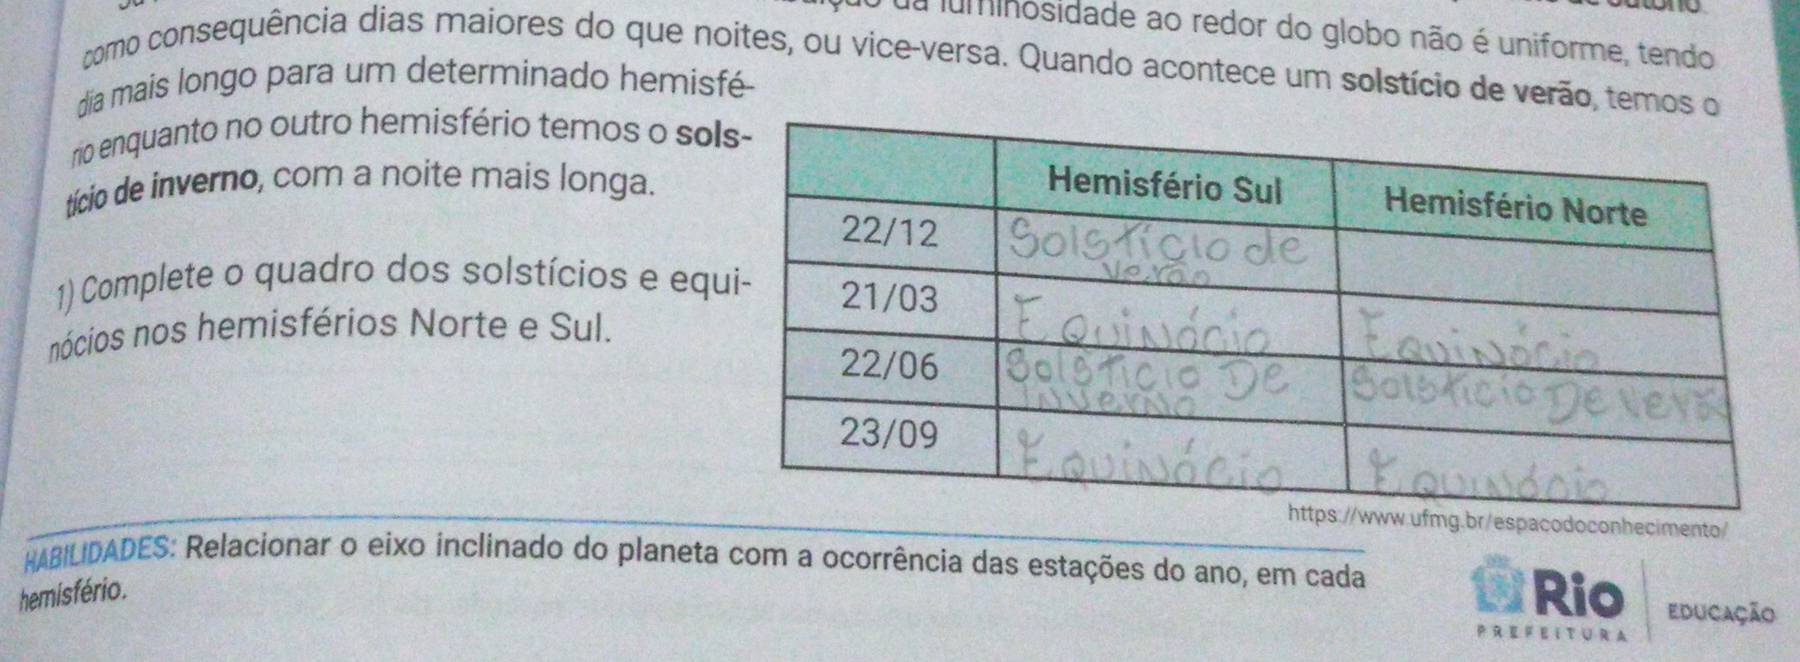 da luminosidade ao redor do globo não é uniforme, tendo
como consequência dias maiores do que noites, ou vice-versa. Quando acontece um solstício de verão, temos o
dia mais longo para um determinado hemisfé-
rio enquanto no outro hemisfério temos o sols-
tício de inverno, com a noite mais longa.
1) Complete o quadro dos solstícios e equi-
nócios nos hemisférios Norte e Sul.
Hemisfério Sul Hemisfério Norte
22/12 Solstício de
verão
21/03 Equinócio Equinócio
22/06 Solsticio De Solsticio De verão
Inverno
23/09 Equinócio Equinócio
https://www.ufmg.br/espacodoconhecimento/
HABILIDADES: Relacionar o eixo inclinado do planeta com a ocorrência das estações do ano, em cada
hemisfério.
Rio
PREFEITURA
EDUCAÇÃO